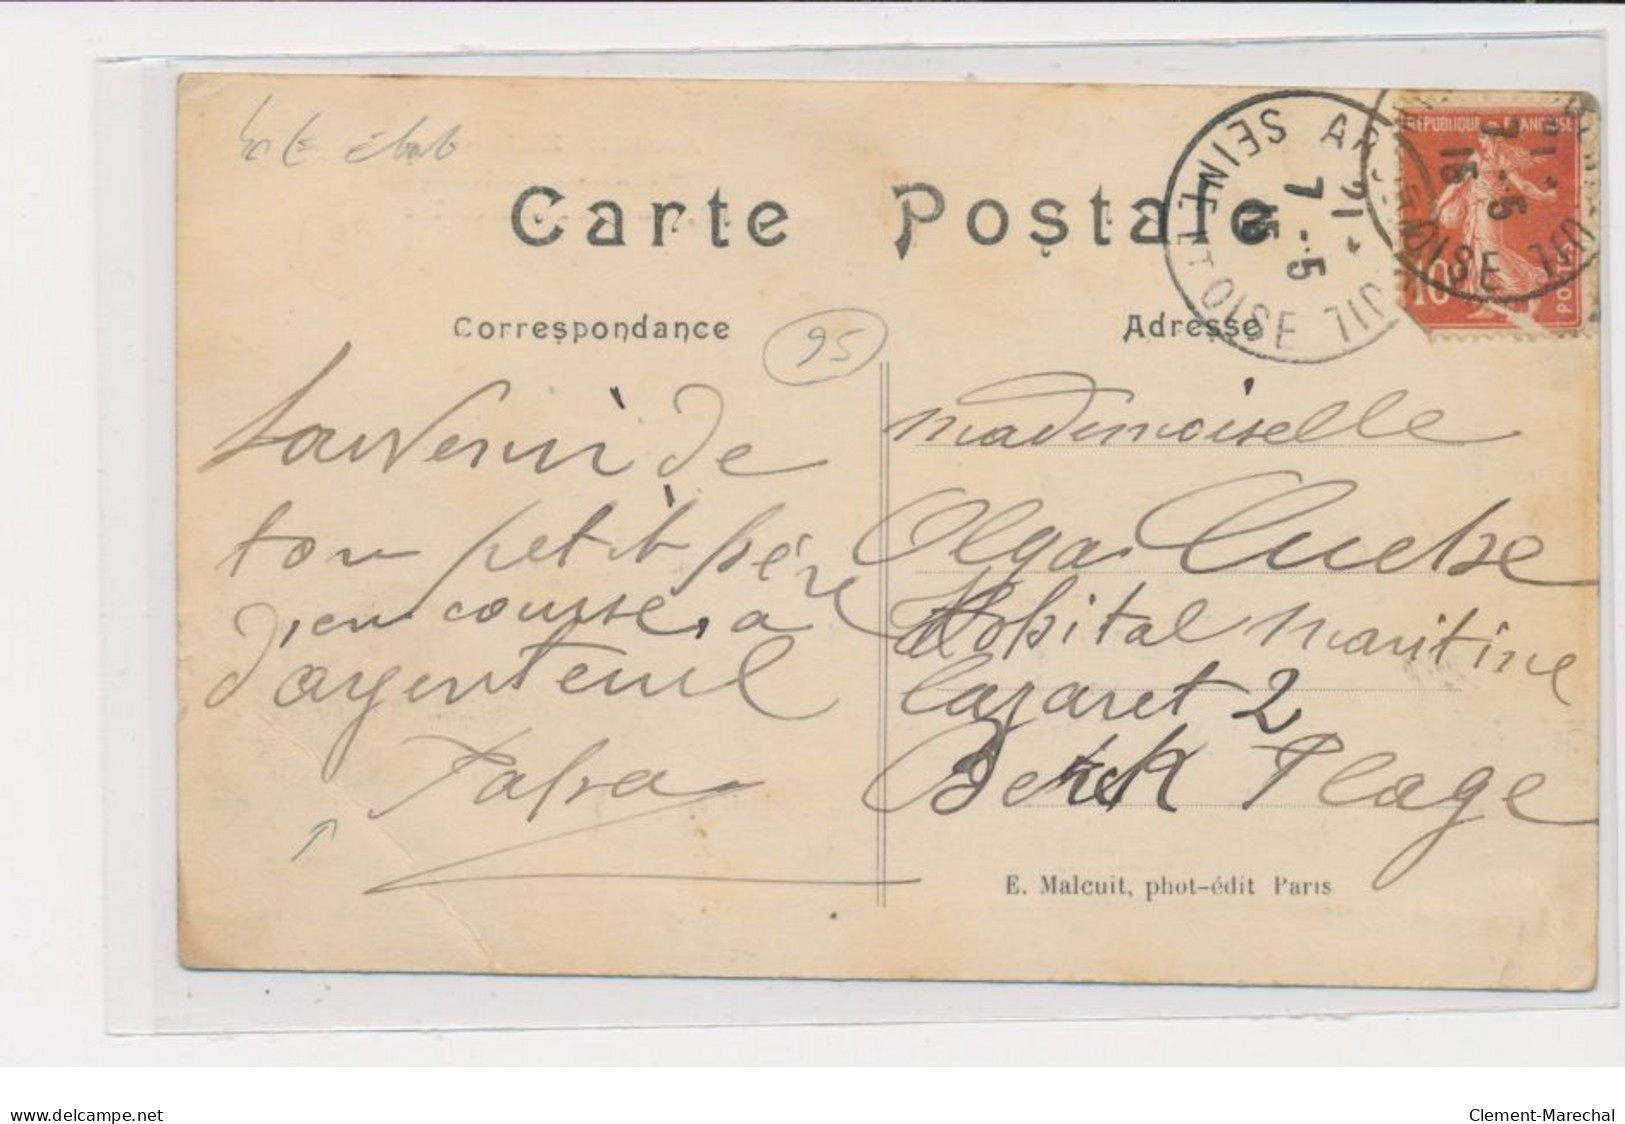 état
Carte Postale
SEINE ET OISE
21 *
7 - 5
REPUBLIQUE FRANÇAISE
10
POSTES
Correspondance
95
Adresse
Souvenir de
ton petit père
d'en course, a
d'argenteuil
Papa
mademoiselle
Olga
Hôpital maritime
lazaret 2
Berck Plage
E. Malcuit, phot-édit Paris
www.delcampe.net
Clement-Marechal